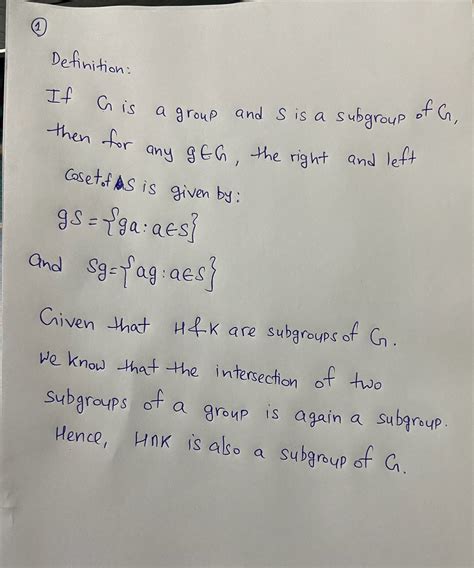 ①
Definition:
If G is a group and S is a subgroup of G,
then for any g∈G, the right and left
coset of S is given by:
gS = {ga : a∈S}
and Sg = {ag : a∈S}
Given that H & K are subgroups of G.
We know that the intersection of two
subgroups of a group is again a subgroup.
Hence, H∩K is also a subgroup of G.